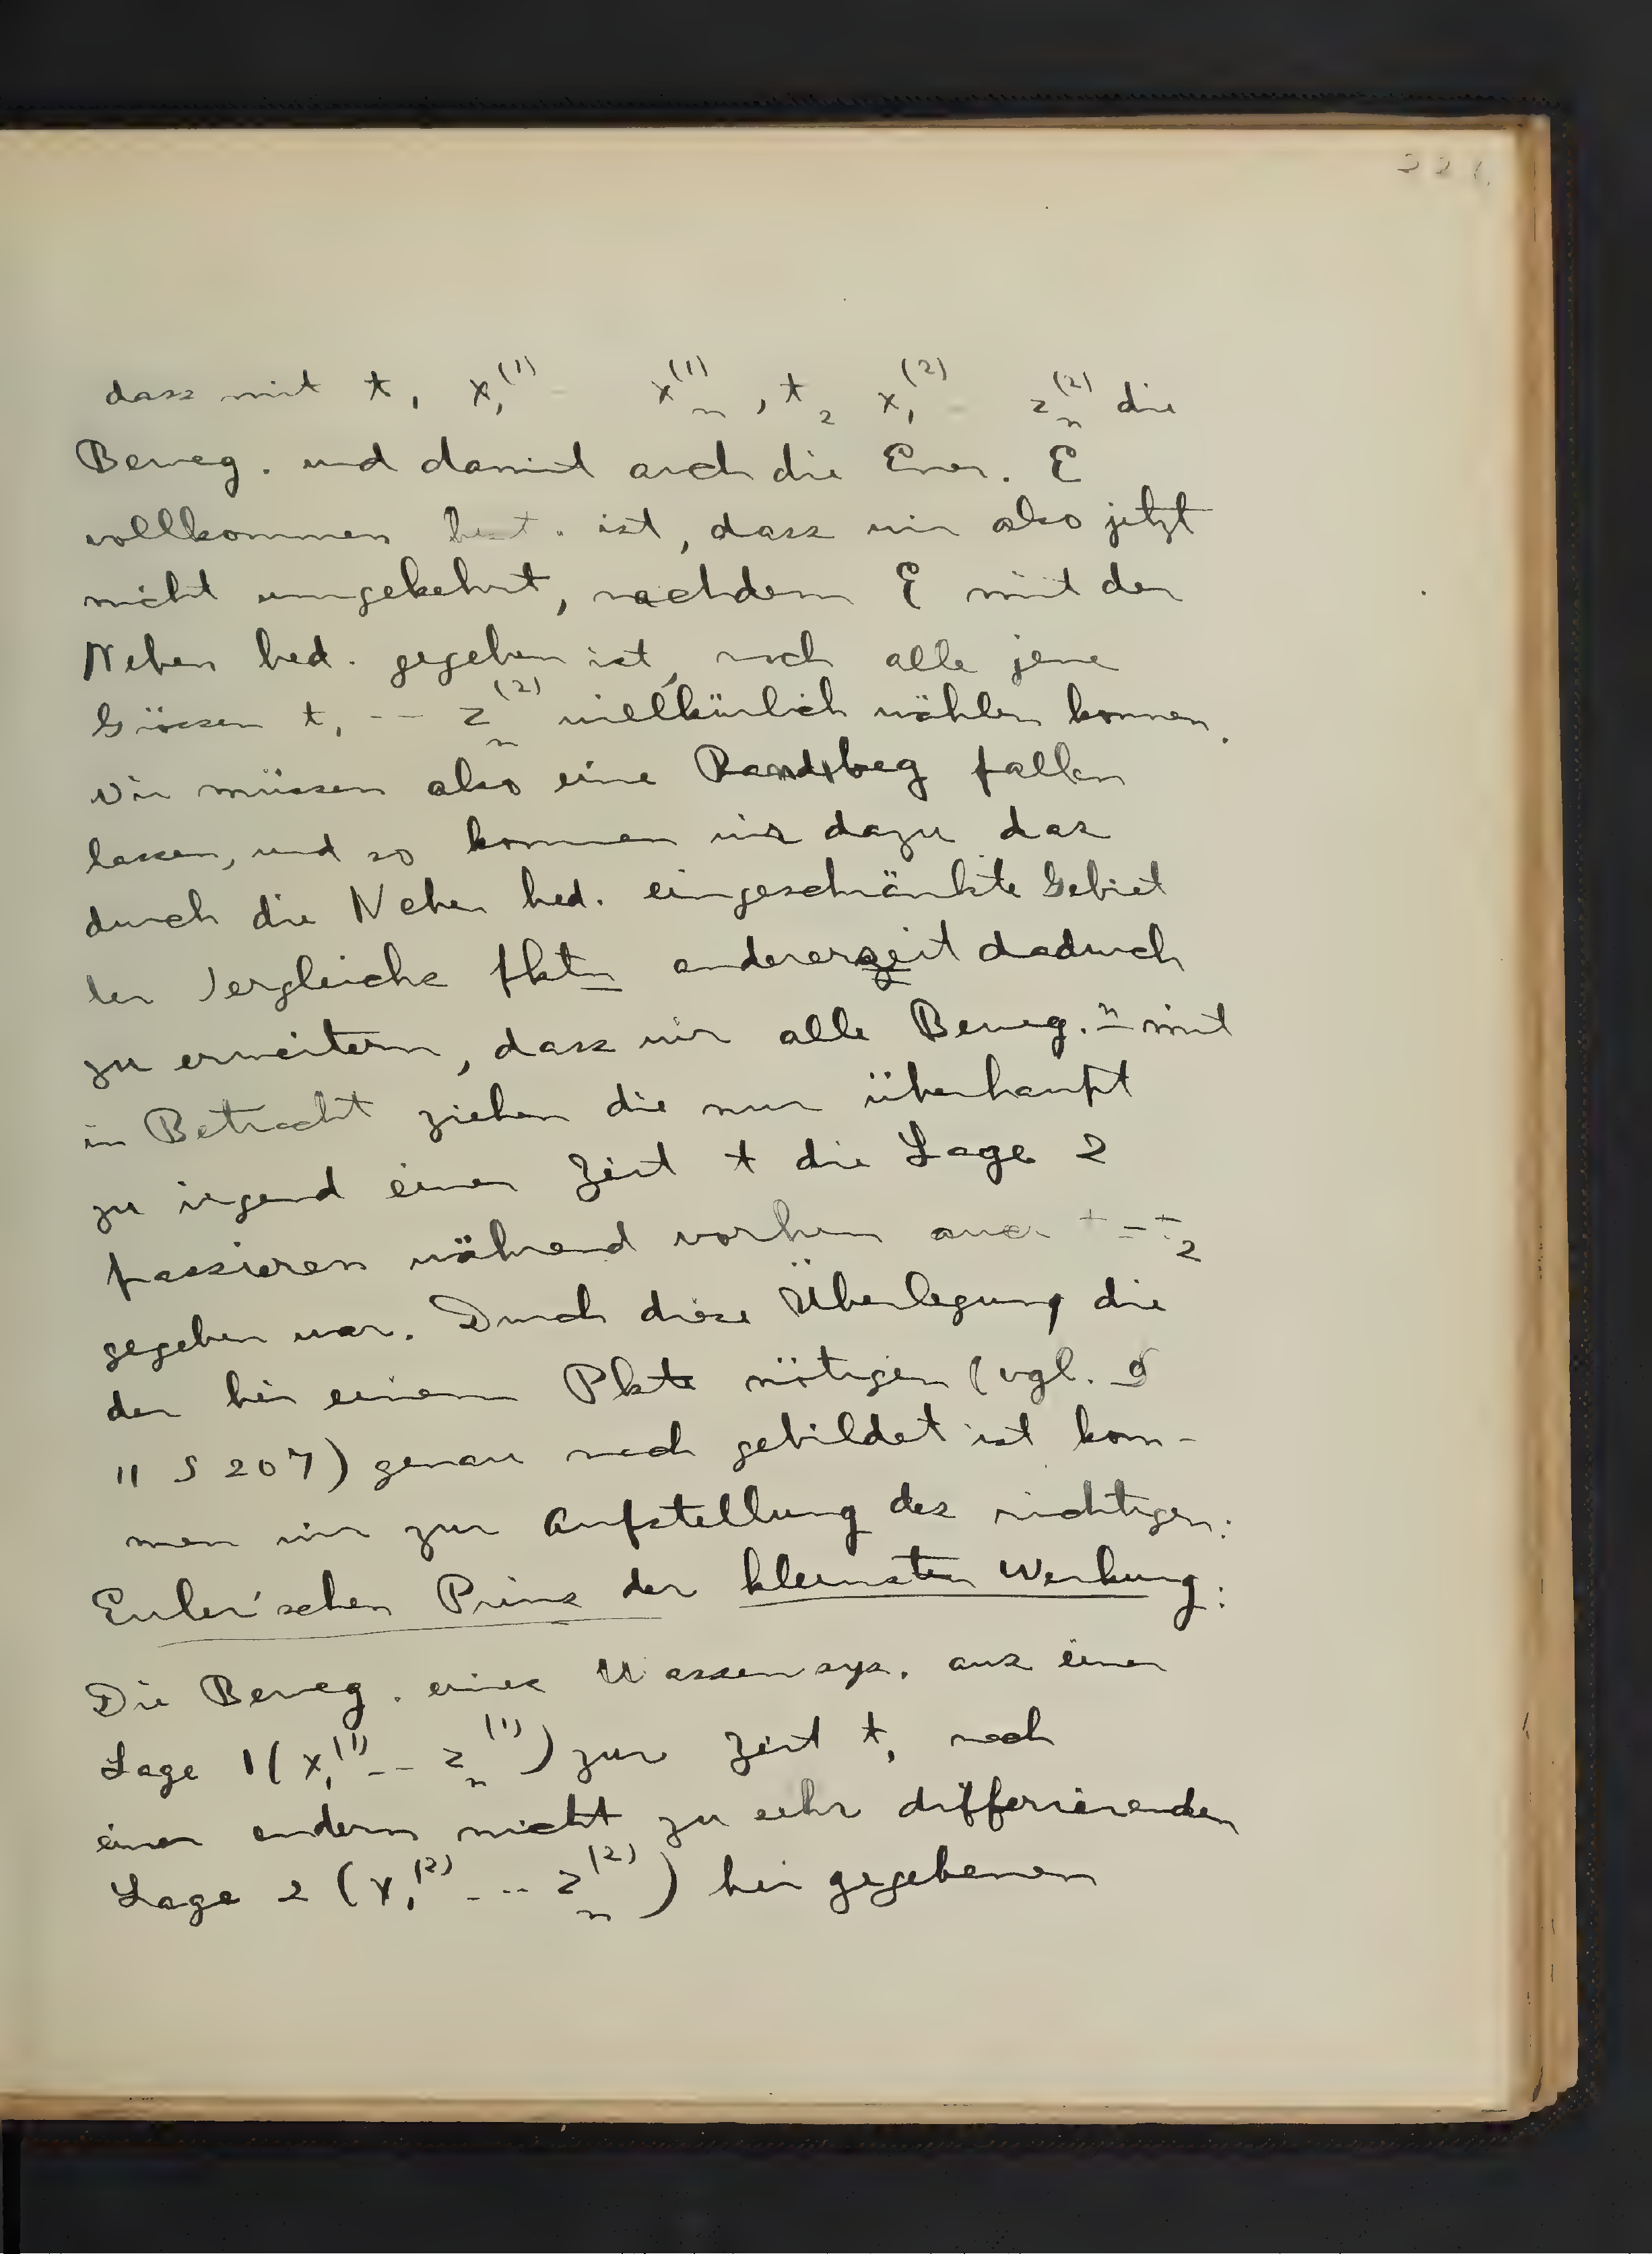 221.
dass mit t₁ x₁⁽¹⁾ - xₙ⁽¹⁾, t₂ x₁⁽²⁾ - zₙ⁽²⁾ die
Beweg. und damit auch die Ener. E
vollkommen best. ist, dass wir also jetzt
nicht umgekehrt, nachdem E mit den
Neben bed. gegeben ist, noch alle jene
Grössen t₁ -- zₙ⁽²⁾ willkürlich wählen konnen.
Wir müssen also eine Randsbeg fallen
lassen, und so kommen wir dazu das
durch die Neben bed. eingeschränkte Gebiet
der Vergleichs fktn anderерseit dadurch
zu erweitern, dass wir alle Beweg.ⁿ mit
in Betracht ziehen die nur überhaupt
zu irgend einer Zeit t die Lage 2
passieren während vorhin auch t = t₂
gegeben war. Durch diese Überlegung die
der bei einem Pkte nötigen (vgl. §
11 S 207) genau nach gebildet ist kom-
men wir zur Aufstellung des richtigen:
Euler'schen Prinz der kleinsten Werkung:
Die Beweg. eines Massensys. aus einer
Lage 1 (x₁⁽¹⁾ -- zₙ⁽¹⁾) zur Zeit t₁ nach
einer andern nicht zu sehr differierenden
Lage 2 (x₁⁽²⁾ --- zₙ⁽²⁾) bei gegebenem